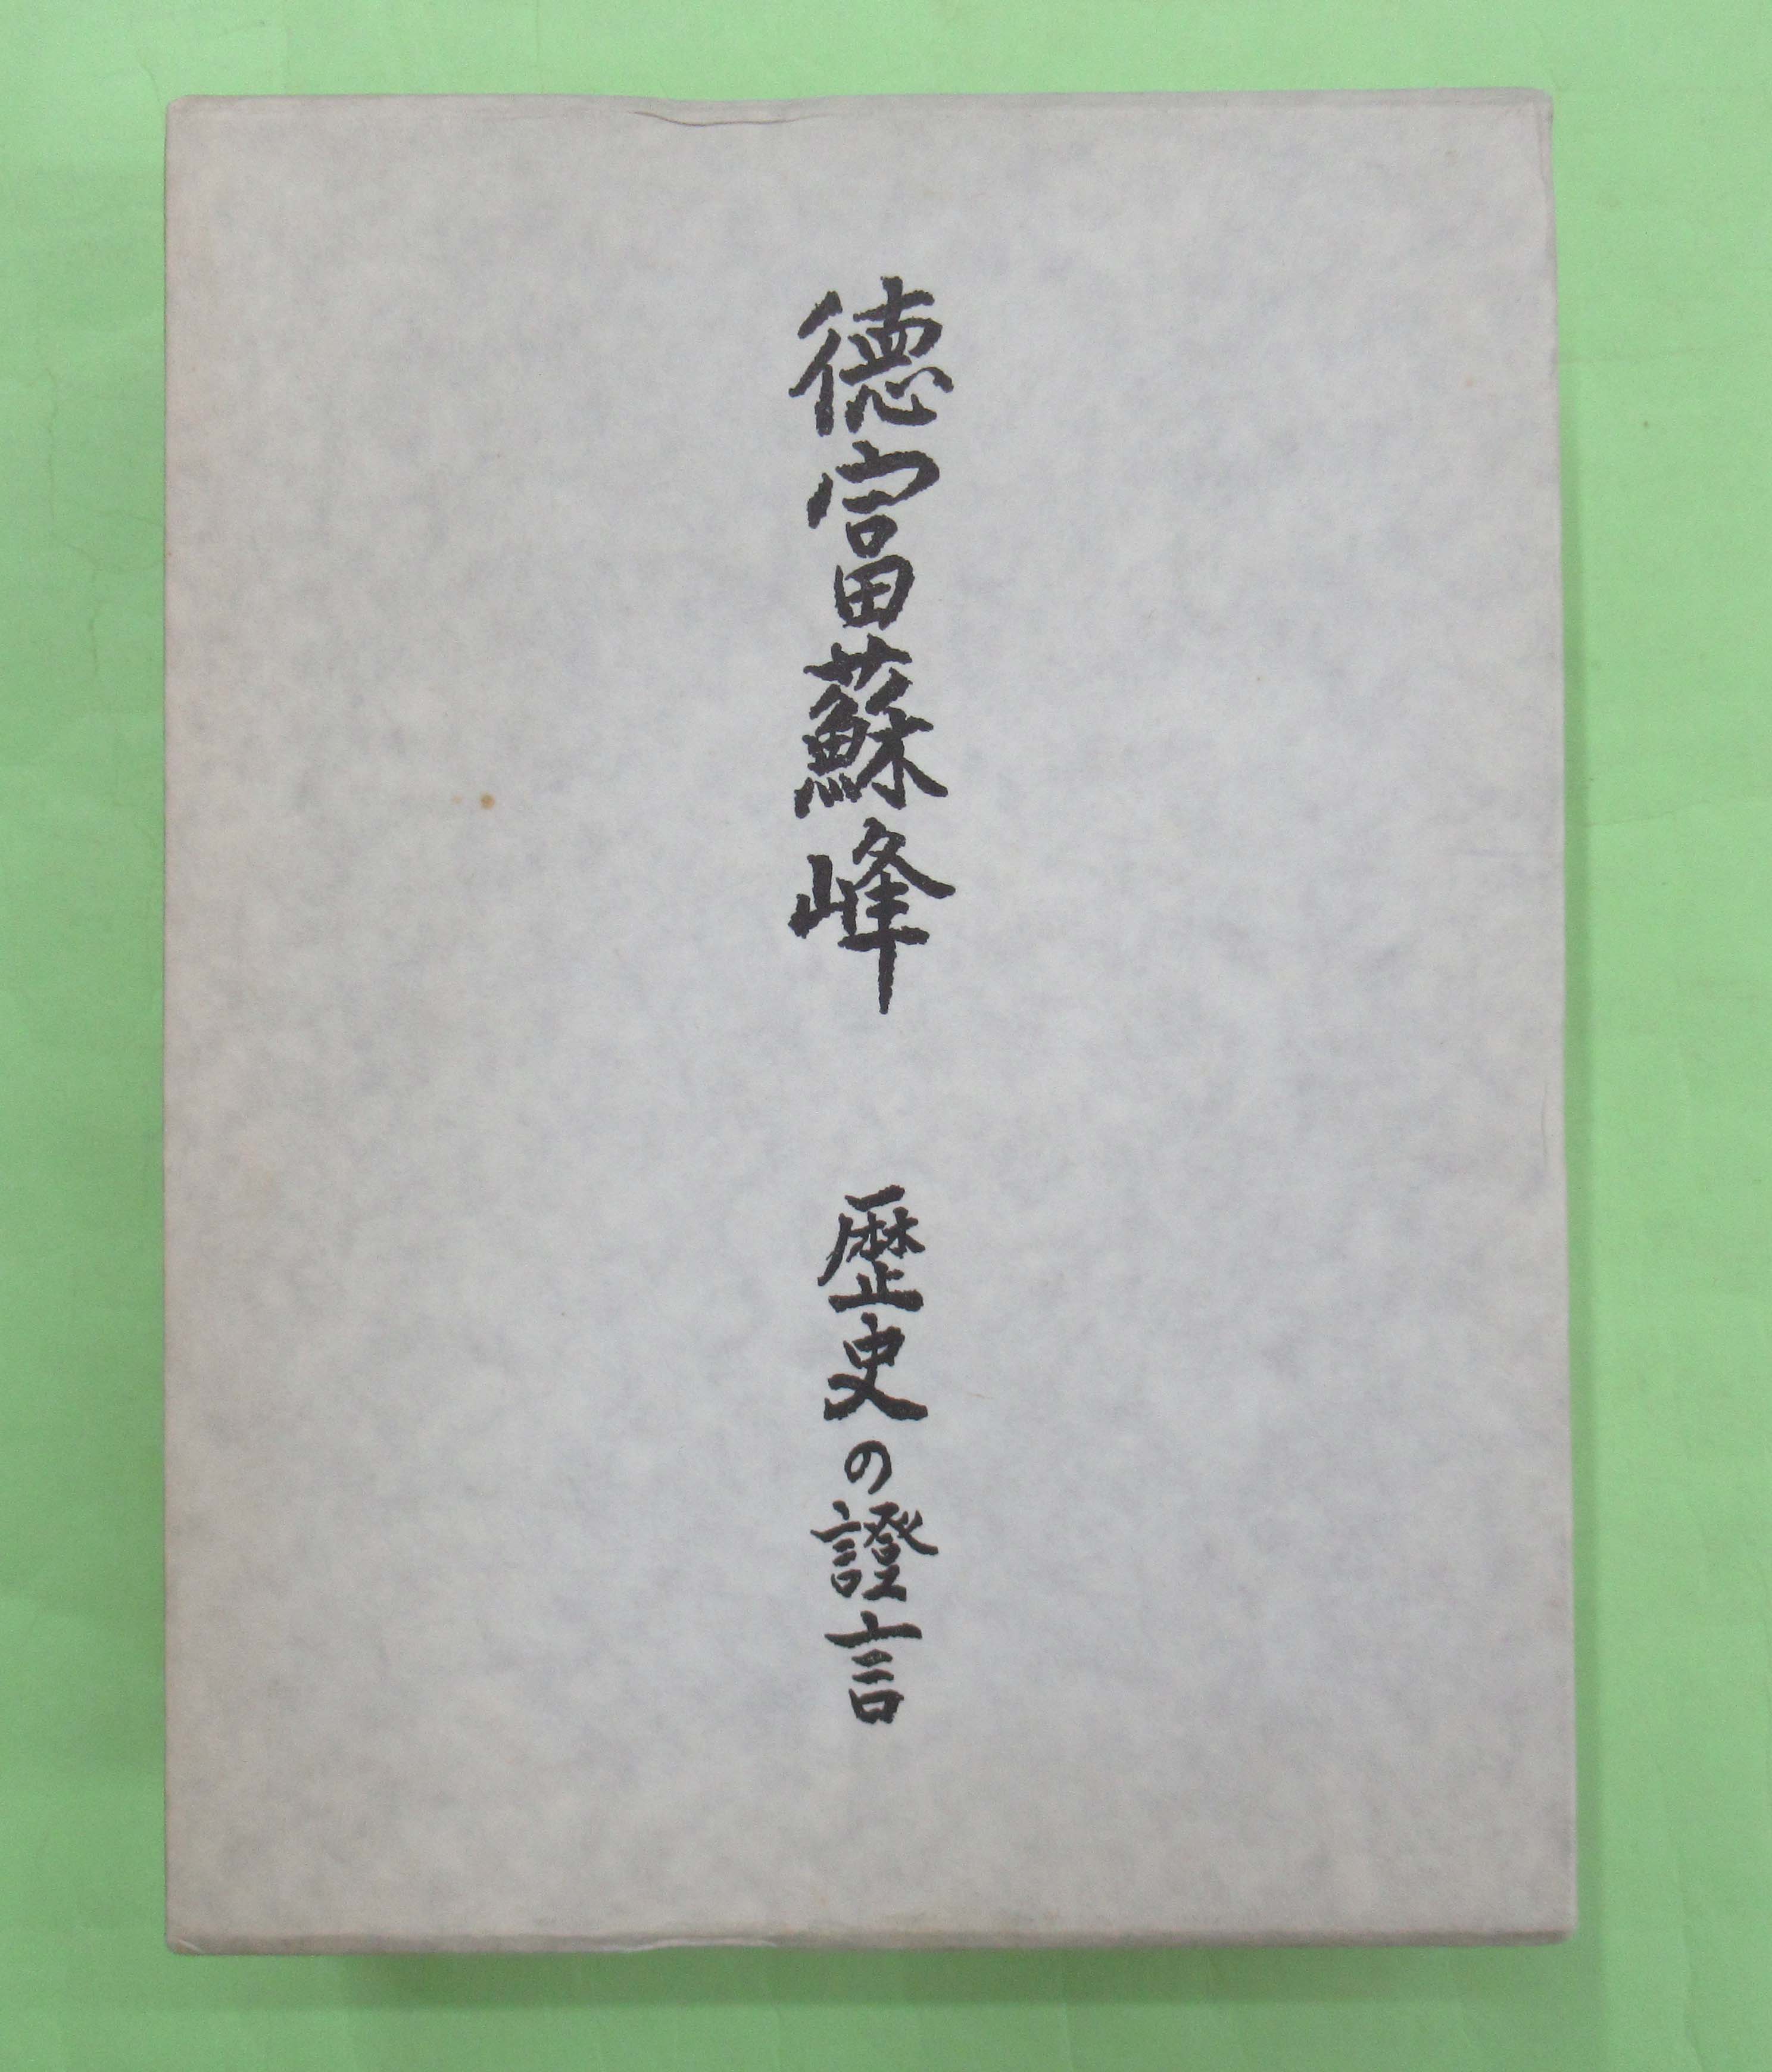 徳富蘇峰　歴史の證言